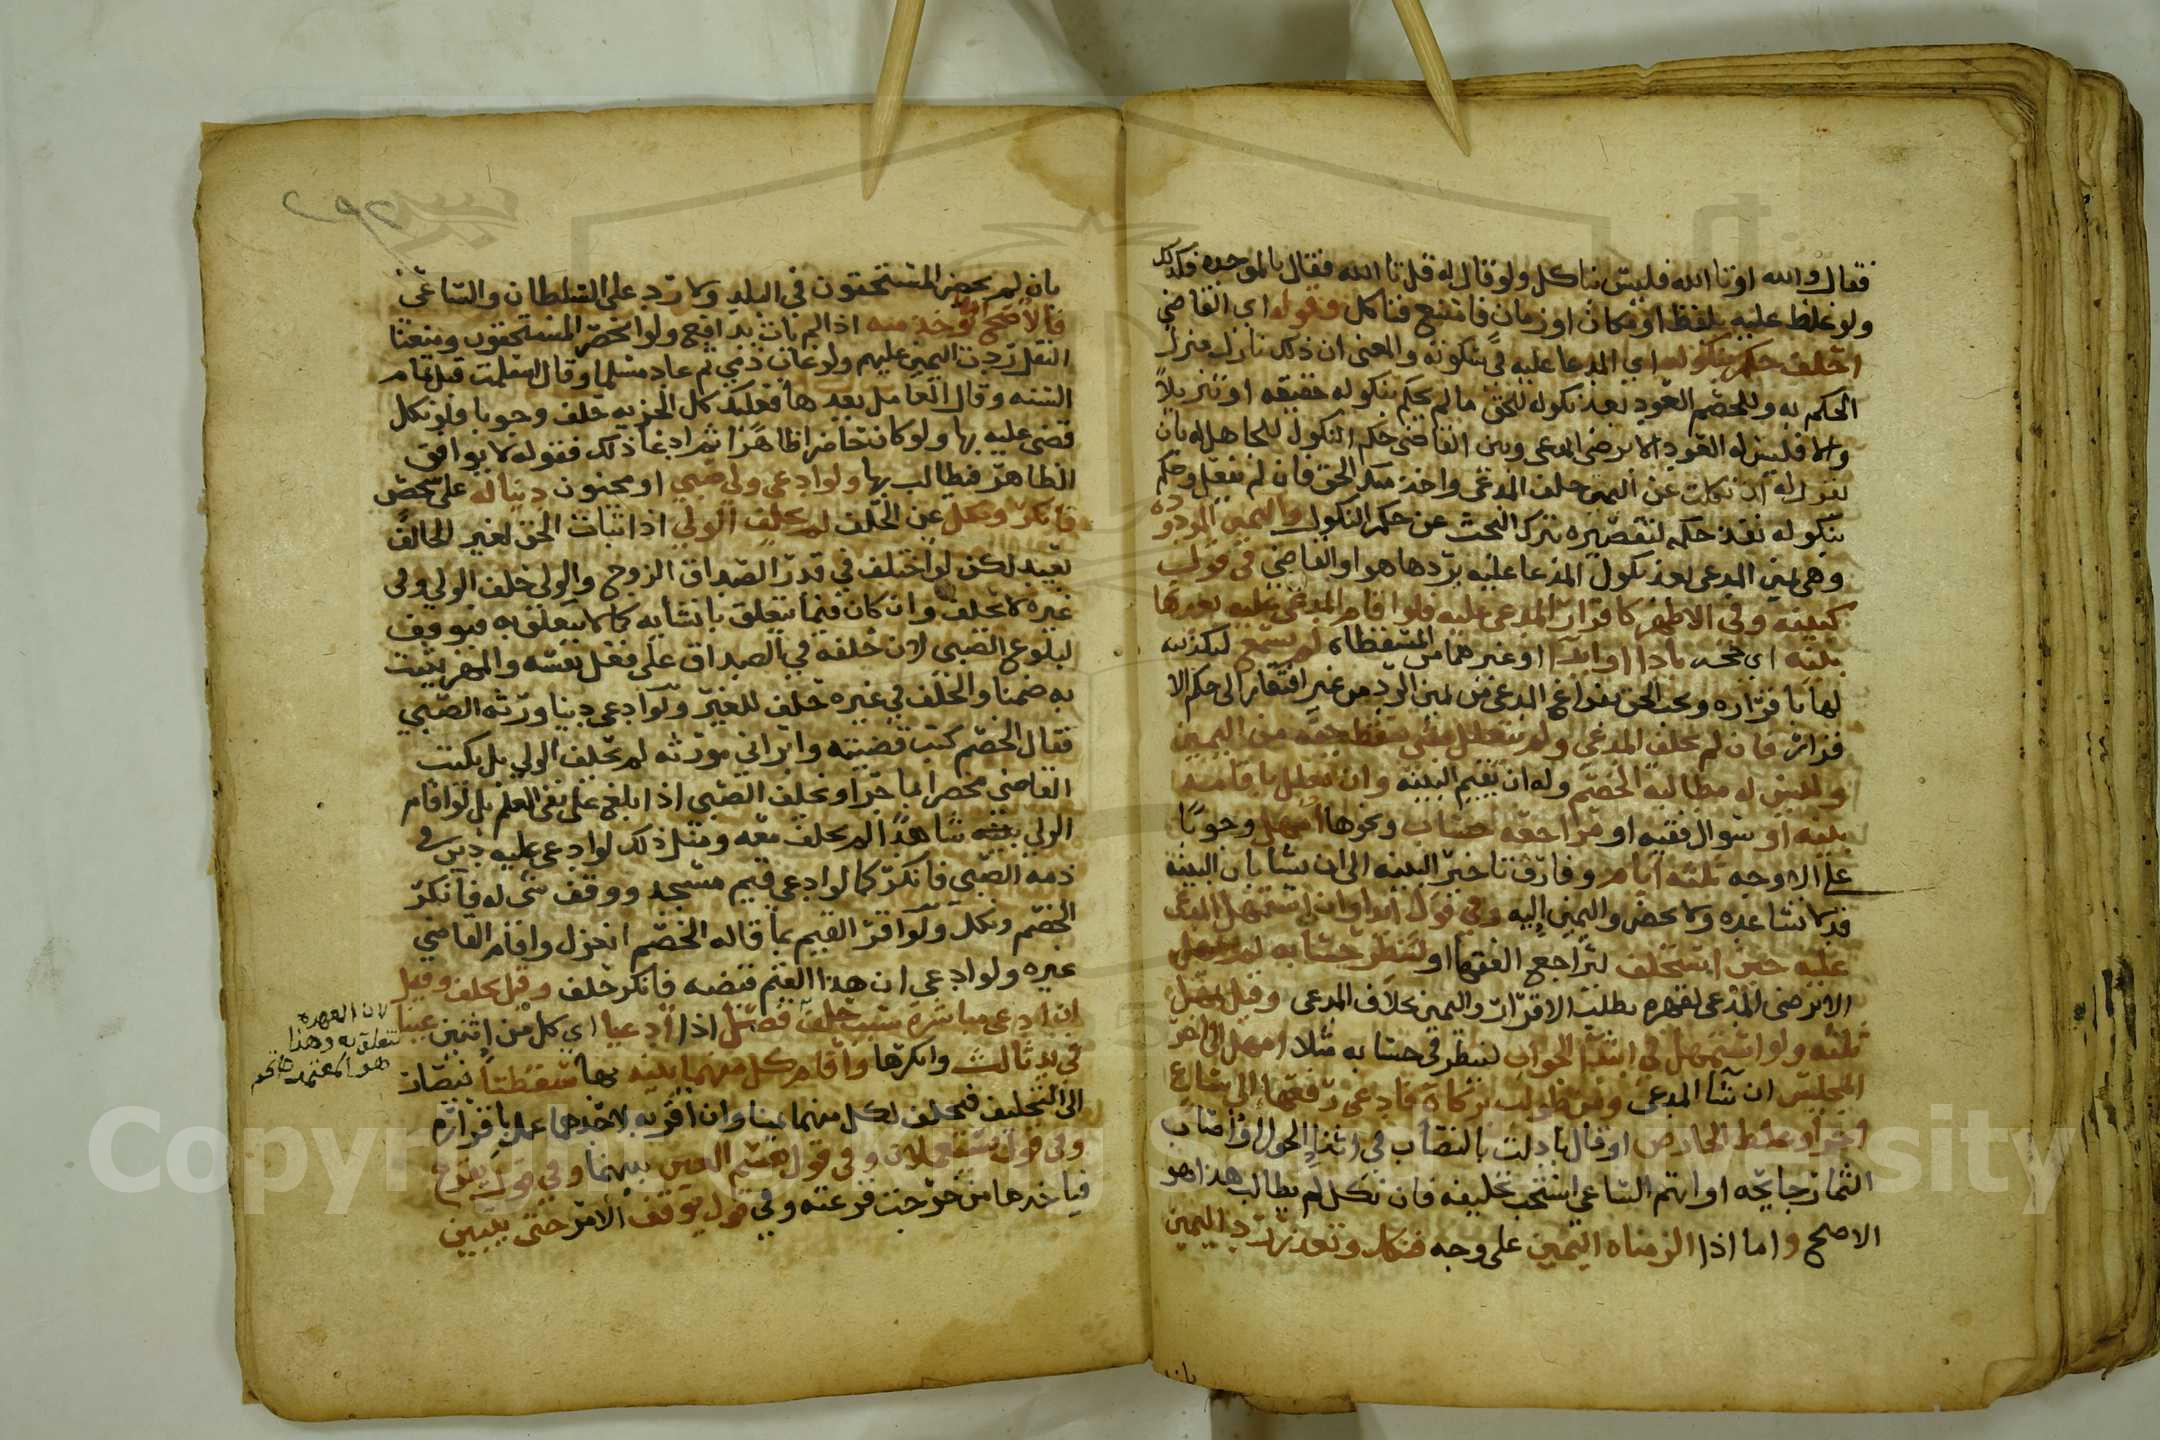 فقال والله او تا الله فليس بناكل ولو قال له قل تا الله فقال بالموحده فكذلك
ولو غلظ عليه بلفظ او مكان او زمان فامتنع فناكل وقوله اي القاضي
احلف حكم بنكوله اي المدعا عليه في سكوته والمعنى ان ذلك نازل منزله
الحكم به وللخصم العود بعد نكوله للحق ما لم يحكم بنكوله حقيقه او تنزيلا
والا فليس له العود الا برضى المدعى وبين القاضي حكم النكول للجاهل به بان
يقول له ان نكلت عن اليمين حلف المدعى واخذ منك الحق فان لم يفعل وحكم
بنكوله نفذ حكمه لتقصيره بترك البحث عن حكم النكول واليمين المردوده
وهي يمين المدعى بعد نكول المدعا عليه بردها هو او القاضي في قول
كبينه وفي الاظهر كاقرار المدعى عليه فلو اقام المدعى عليه بعدها
بينه اي حجه بادا او ابرا او غيرهما من المسقطات لم تسمع لتكذيبه
لها باقراره ويجب الحق بفراغ المدعى من يمين الرد من غير افتقار الى حكم كالا
قرار فان لم يحلف المدعى ولم يتعلل بشي سقط حقه من اليمين
وليس له مطالبة الخصم وله ان يقيم البينه وان تعلل باقامة
بينه او سوال فقيه او مراجعه حساب ونحوها امهل وجوبا
على الاوجه ثلثه ايام وفارق تاخير البينه الى ان يشا بان البينه
قد لا تساعده ولا تحضر واليمين اليه وفي قول ابدا وان استمهل المدعى
عليه حين استحلف ليراجع الفقها او لينظر حسابه لم يمهل
الا برضى المدعى لقهره بطلب الاقرار واليمين بخلاف المدعى وقيل يمهل
ثلثه ولو استمهل في ابتدا الجواب لينظر في حسابه مثلا امهل الى اخر
المجلس ان شا المدعى ومن طولب بزكاة فادعى دفعها الى ساع
اخر او غلط الخارص او قال بادلت بالنصاب في اثنا الحول او اصاب
الثمار جايحه او اتهم الساعي استحب تحليفه فان نكل لم يطالب هذا هو
الاصح واما اذا الزمناه اليمين على وجه فنكل وتعذر رد اليمين
بان
بان لم يحضر المستحقون في البلد ولا رد على السلطان والساعي
فالاصح انها توخذ منه اذا لم يات بدافع ولو انحصر المستحقون ومنعنا
النقل ردت اليمين عليهم ولو غاب ذمي ثم عاد مسلما وقال اسلمت قبل تمام
السنه وقال العامل بعدها فعليك كل الجزيه حلف وجوبا فلو نكل
قضي عليه بها ولو كانت حاضرا ظاهرا ثم ادعا ذلك فقوله لا يوافق
الظاهر فيطالب بها ولو ادعى ولي صبي او مجنون دينا له على شخص
فانكر ونكل عن الحلف لم يحلف الولي اذ اثبات الحق لغير الحالف
بعيد لكن لو اختلف في قدر الصداق الزوج والولي حلف الولي وولي
غيره لا يحلف وان كان فيما يتعلق بانشايه كما لا يتعلق به فيوقف
لبلوغ الصبي لان حلفه في الصداق على فعل نفسه والمهر يثبت
به ضمنا والحلف في غيره حلف للغير ولو ادعى دينا ورثه الصبي
فقال الخصم كنت قضيته وابراني مورثه لم يحلف الولي بل يكتب
القاضي محضرا بما جرا ويحلف الصبي اذا بلغ على نفي العلم بل لو اقام
الولي بينه شاهدا لم يحلف معه ومثل ذلك لو ادعى عليه دين في
ذمه الصبي فانكر كما لو ادعى قيم مسجد ووقف شي له فانكر
الخصم ونكل ولو اقر القيم بما قاله الخصم انعزل واقام القاضي
غيره ولو ادعى ان هذا القيم قبضه فانكر حلف وقيل يحلف وقيل
ان ادعى مباشره سببه حلف فصل اذا ادعيا اي كل من اثنين عينا
في يد ثالث وانكرها واقام كل منهما بينه بها سقطتا فيصار
الى التحليف فيحلف لكل منهما يمينا وان اقر به لاحدهما عمل باقراره
وفي قول تستعملان وفي قول تقسم العين بينهما وفي قول يقرع
فياخذها من خرجت قرعته وفي قول يوقف الامر حتى يتبين
لان العهده
تتعلق به وهذا
هو المعتمد